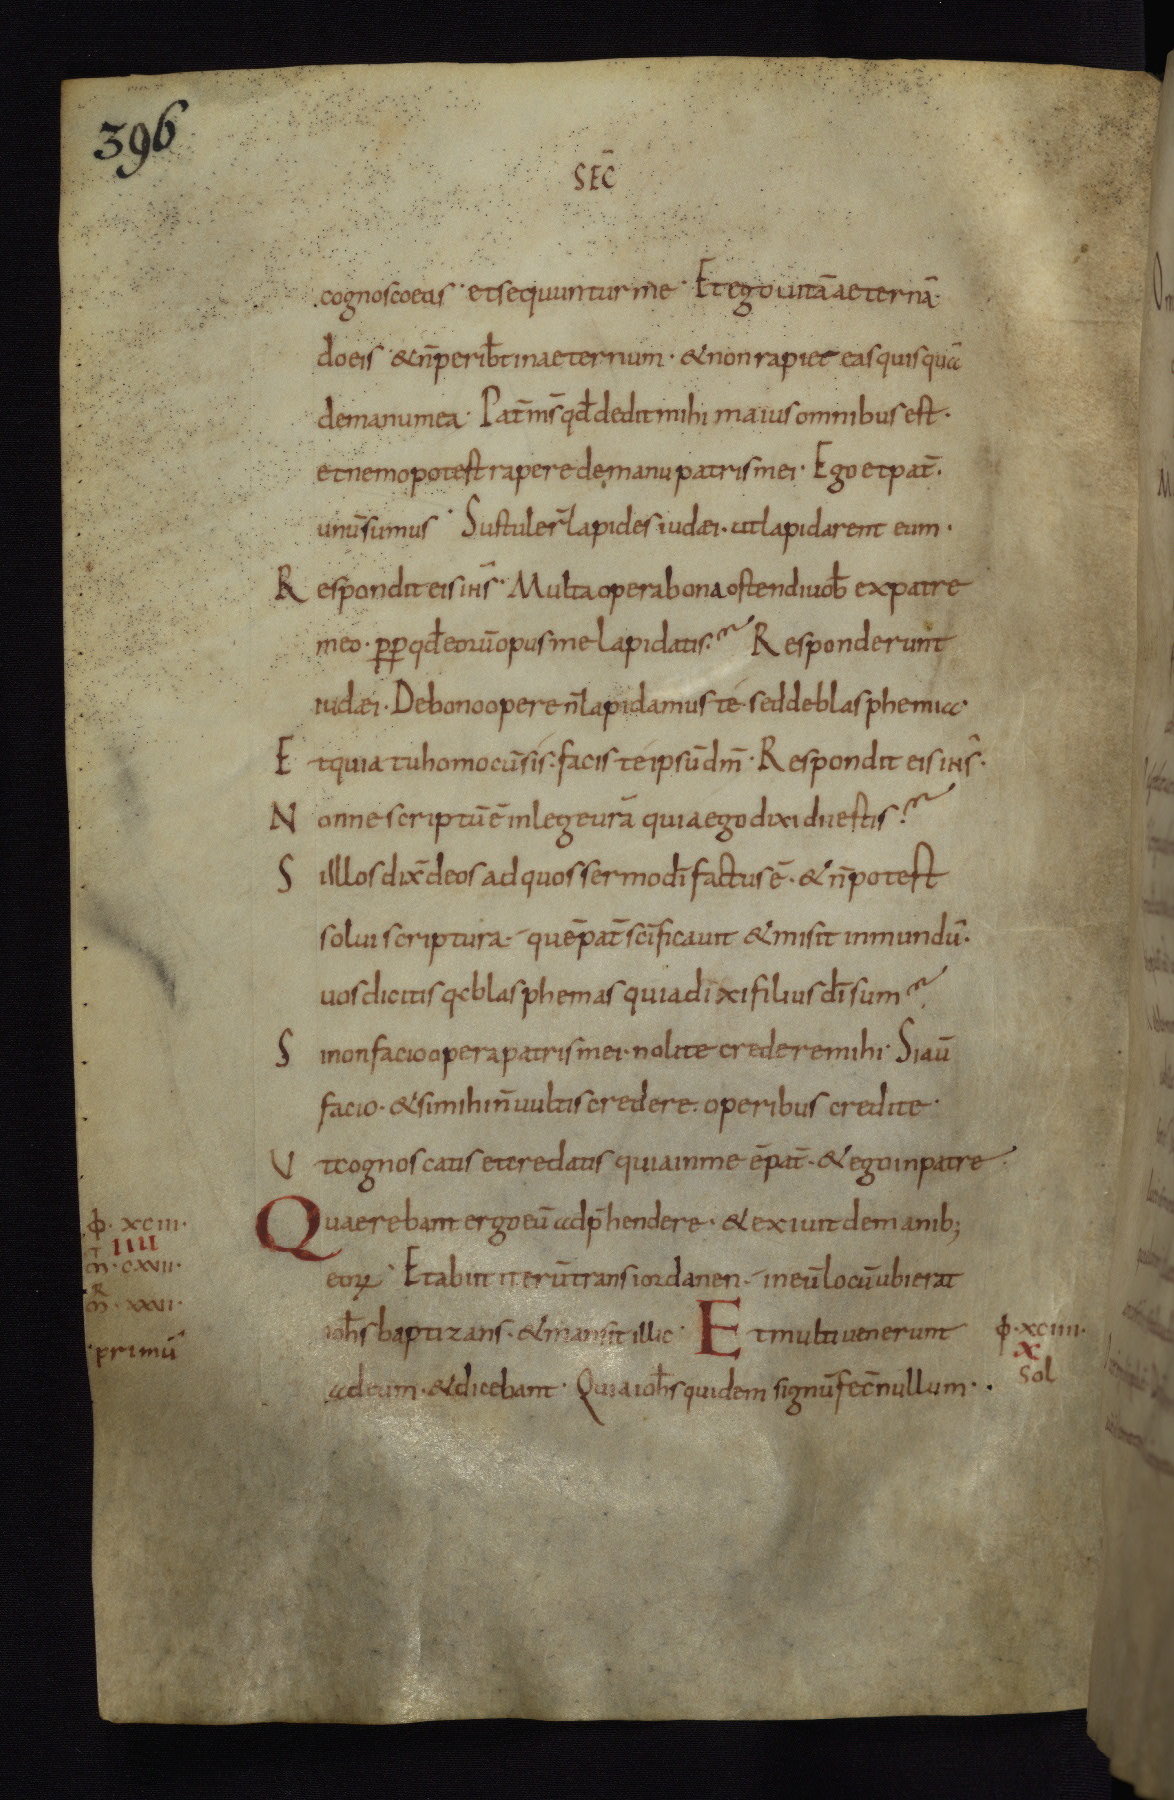 396
SEC̄
cognoscoeas · et sequuntur me · Et ego uitā aeternā ·
do eis · & n̄ perib̄t in aeternum · & non rapiet eas quisquā
de manu mea · Pat̄ ms̄ qd̄ dedit mihi maius omnibus est ·
et nemo potest rapere de manu patris mei · Ego et pat̄ ·
unū sumus · Sustuler̄ lapides iudæi · ut lapidarent eum ·
Respondit eis ihs̄ · Multa opera bona ostendi uob̄ ex patre
meo · ꝓp qd̄ eorū opus me lapidatis · Responderunt
iudæi · De bono opere n̄ lapidamus te sed de blasphemia ·
Et quia tu homo cū sis · facis te ipsū dm̄ · Respondit eis ihs̄ ·
Nonne scriptū ē in lege urā quia ego dixi dii estis ·
Si illos dix̄ deos ad quos sermo dī factus ē · & n̄ potest
solui scriptura · quē pat̄ scīficauit & misit in mundū ·
uos dicitis qc blasphemas quia dixi filius dī sum
Si non facio opera patris mei · nolite credere mihi · Si aū
facio · & si mihi n̄ uultis credere · operibus credite ·
Ut cognoscatis et credatis quia in me ē pat̄ · & ego in patre ·
Quaerebant ergo eū adp̄hendere · & exiuit de manib;
eoꝝ · Et abiit iterū trans iordanen · in eū locū ubi erat
ioh̄s baptizans · & mansit illic · Et multi uenerunt
ad eum · & dicebant · Quia ioh̄s quidem signū fec̄ nullum ·
ϕ · xciii ·
IIII
m̄ · cxvii ·
R
m · xxii ·
primū
ϕ · xciiii ·
X
Sol